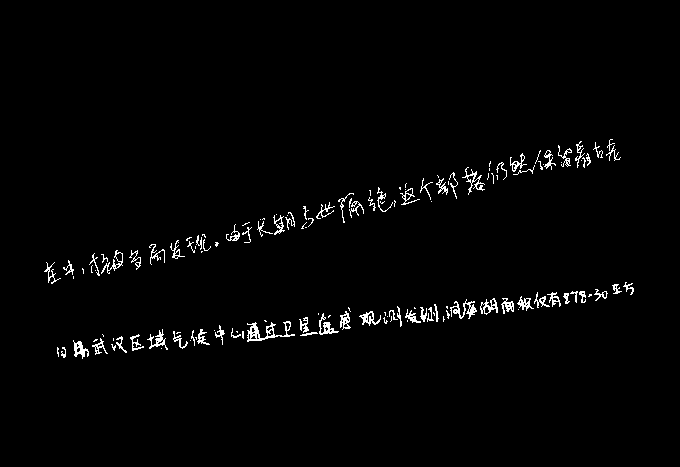 年中，被当局发现。由于长期与世隔绝，这个部落仍然保留着古老
日易武汉区域气候中心通过卫星遥感观测发现，洞庭湖面积仅有878.30平方